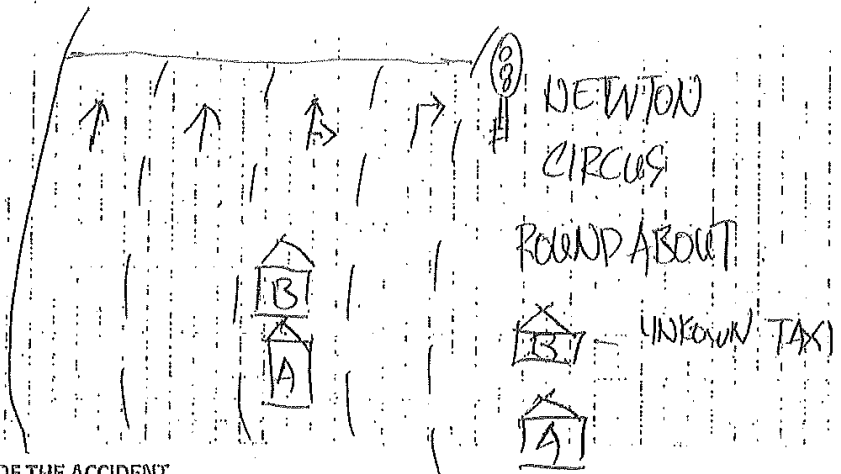 NEWTON
CIRCUS
ROUNDABOUT
B
A
B - UNKOWN TAXI
A
OF THE ACCIDENT